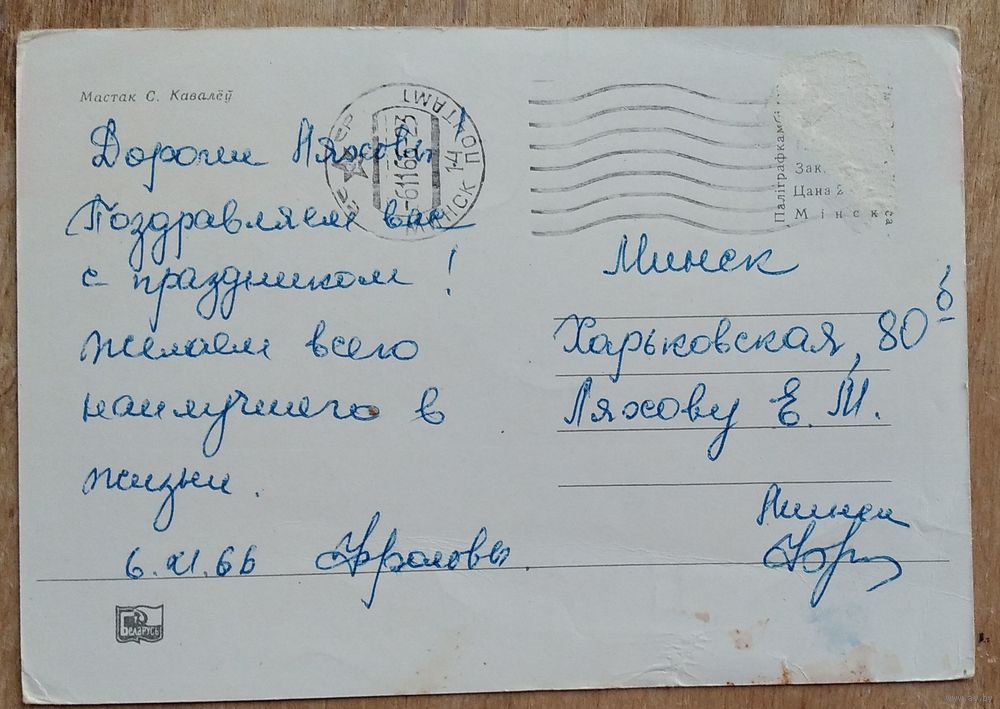 Мастак С. Кавалёў
Дорогие Ляховы!
Поздравляем вас
с праздником!
Желаем всего
наилучшего в
жизни.
6.XI.66 Фроловы.
Беларусь
МИНСК 14 ПОЧТАМТ
-61166-23
Зак.
Цана 2
Мінск
Минск
Харьковская, 80
Ляхову Е. М.
Минск
www.ay.by